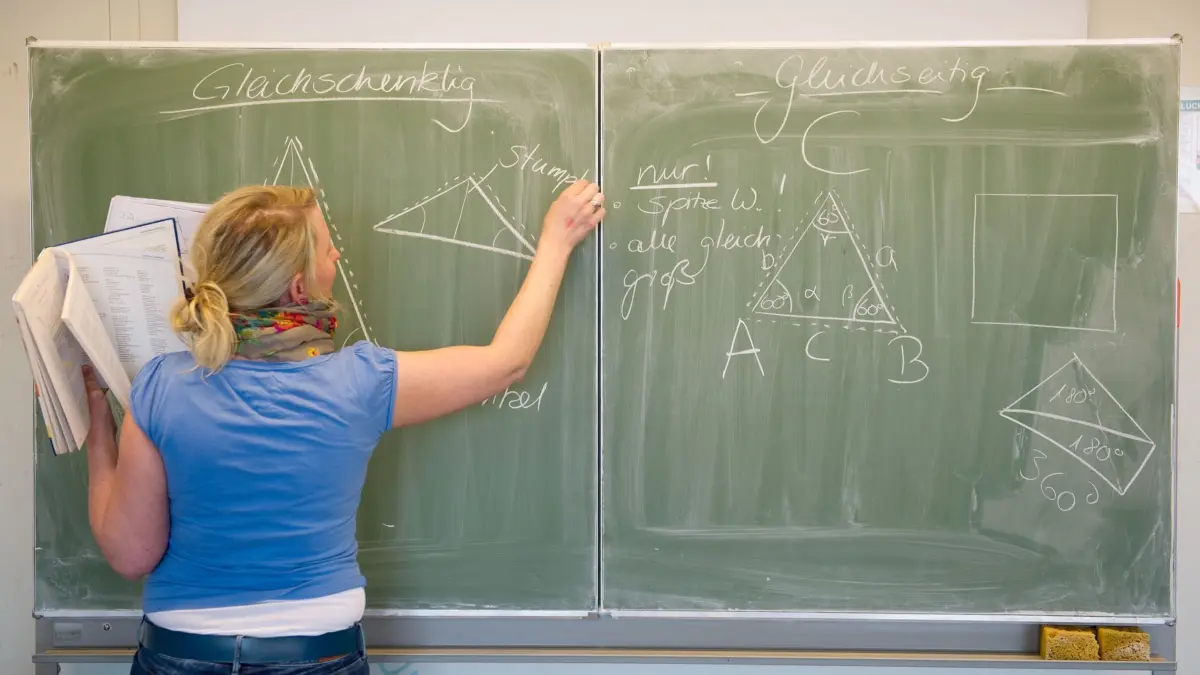 Gleichschenklig
stump
Gleichseitig
C
nur!
• spitze W. !
• alle gleich
groß
60°
γ
b
a
60°
α
β
60°
A
C
B
180°
180°
360°